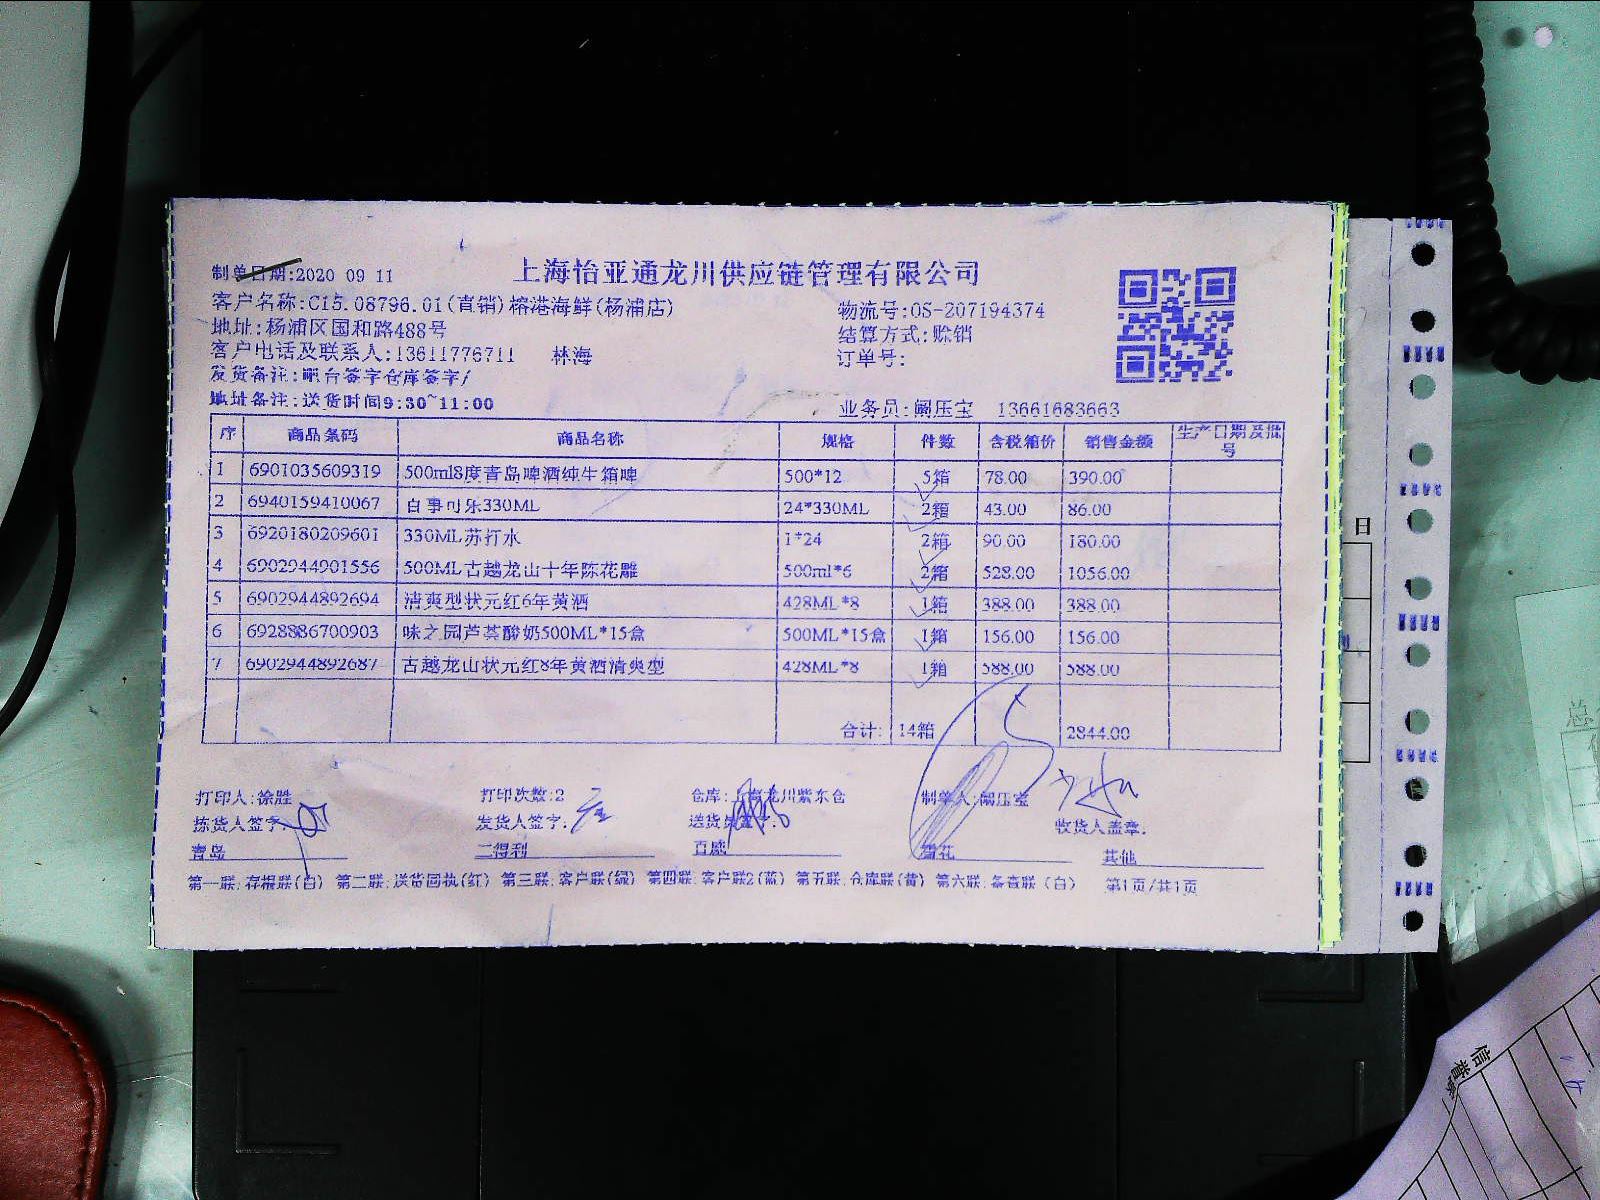 上海怡亚通龙川供应链管理有限公司
制单日期:2020 09 11
客户名称:C15.08796.01(直销)榕港海鲜(杨浦店)
物流号:OS-207194374
地址:杨浦区国和路488号
结算方式:赊销
客户电话及联系人:13611776711 林海
订单号:
发货备注:吧台签字仓库签字/
地址备注:送货时间9:30~11:00
业务员:阚压宝 13661683663
序 商品条码 商品名称 规格 件数 含税箱价 销售金额 生产日期及批号
1 6901035609319 500ml8度青岛啤酒纯生箱啤 500*12 5箱 78.00 390.00
2 6940159410067 百事可乐330ML 24*330ML 2箱 43.00 86.00
3 6920180209601 330ML苏打水 1*24 2箱 90.00 180.00
4 6902944901556 500ML古越龙山十年陈花雕 500ml*6 2箱 528.00 1056.00
5 6902944892694 清爽型状元红6年黄酒 428ML*8 1箱 388.00 388.00
6 6928886700903 味之园芦荟酸奶500ML*15盒 500ML*15盒 1箱 156.00 156.00
7 6902944892687 古越龙山状元红8年黄酒清爽型 428ML*8 1箱 588.00 588.00
合计: 14箱 2844.00
打印人:徐胜 打印次数:2 仓库:上海龙川紫东仓 制单人:阚压宝
拣货人签字: 发货人签字: 送货员签字: 收货人盖章:
青岛 三得利 百威 雪花 其他
第一联:存根联(白) 第二联:送货回执(红) 第三联:客户联(绿) 第四联:客户联2(蓝) 第五联:仓库联(黄) 第六联:备查联(白) 第1页/共1页
日
总
信誉